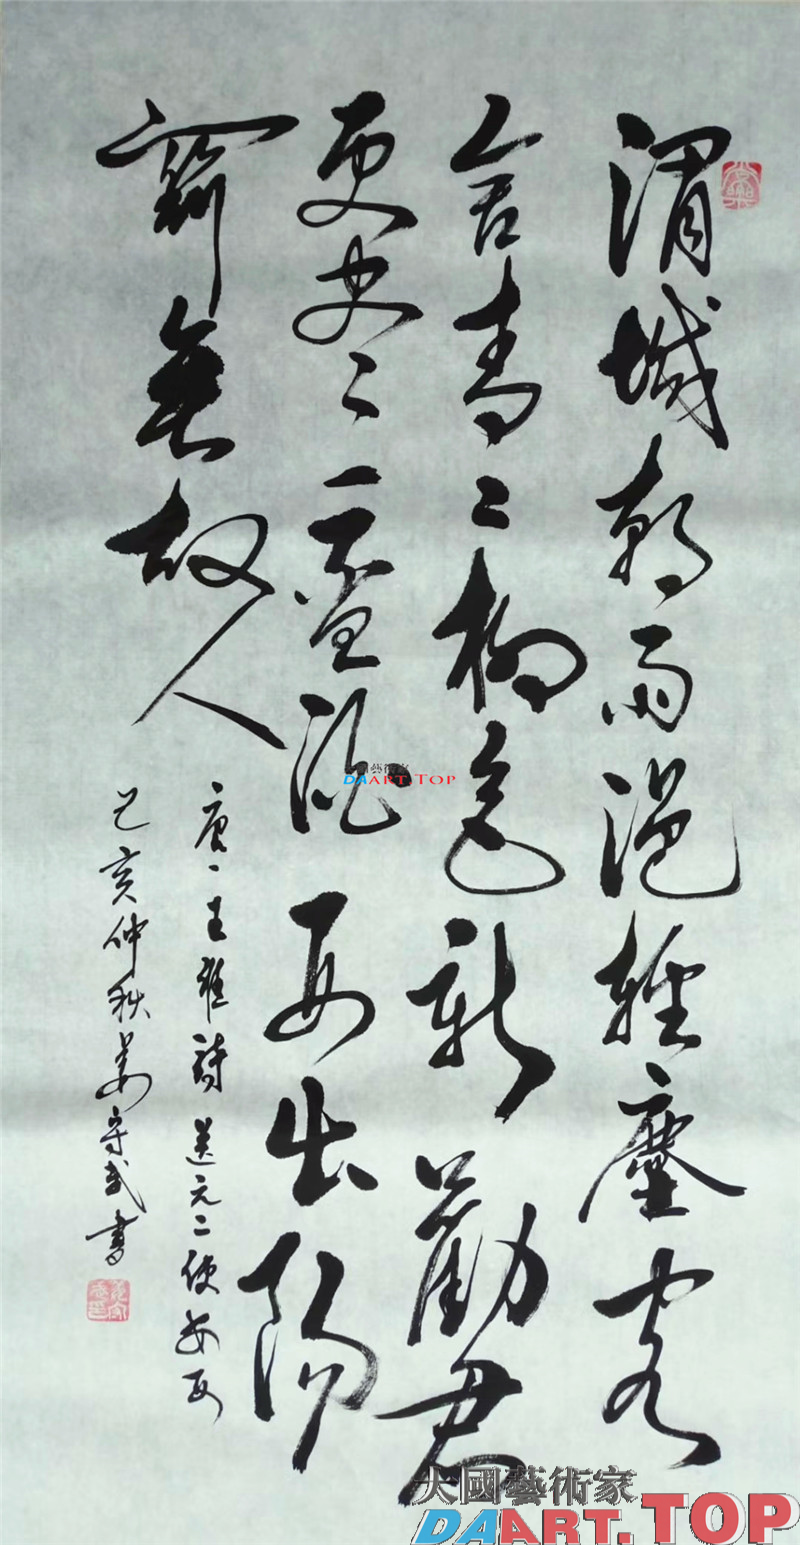 渭城朝雨浥輕塵客
舍青〻柳色新勸君
更尽一盃酒西出陽
關無故人
唐、王維詩送元二使安西
己亥仲秋姜守武書
大國藝術家
DAART.TOP
大國藝術家
DAART.TOP